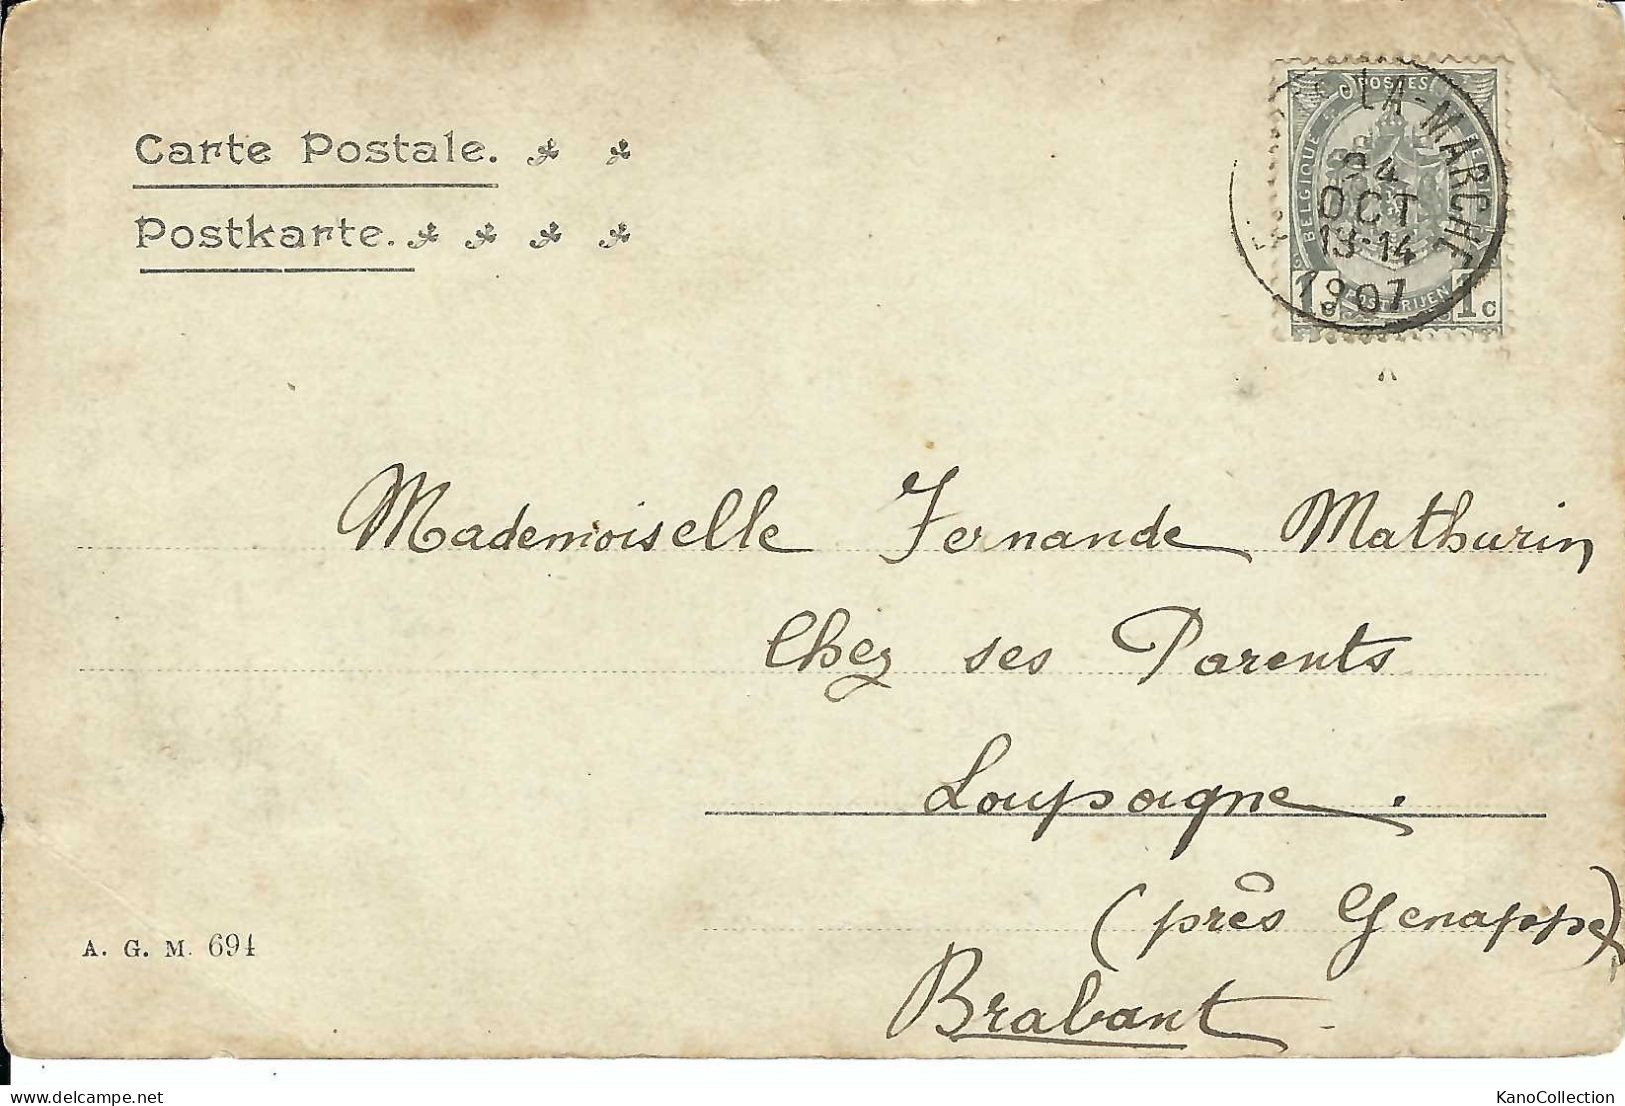 Carte Postale.
Postkarte.
POSTES
BELGIQUE
POSTERIJEN
1c 1c
LA-MARCHE
24
OCT
13-14
1907
Mademoiselle Fernande Mathurin
Chez ses Parents
Loupoigne.
(près Genappe)
Brabant
A. G. M. 694
delcampe.net
KanoCollection